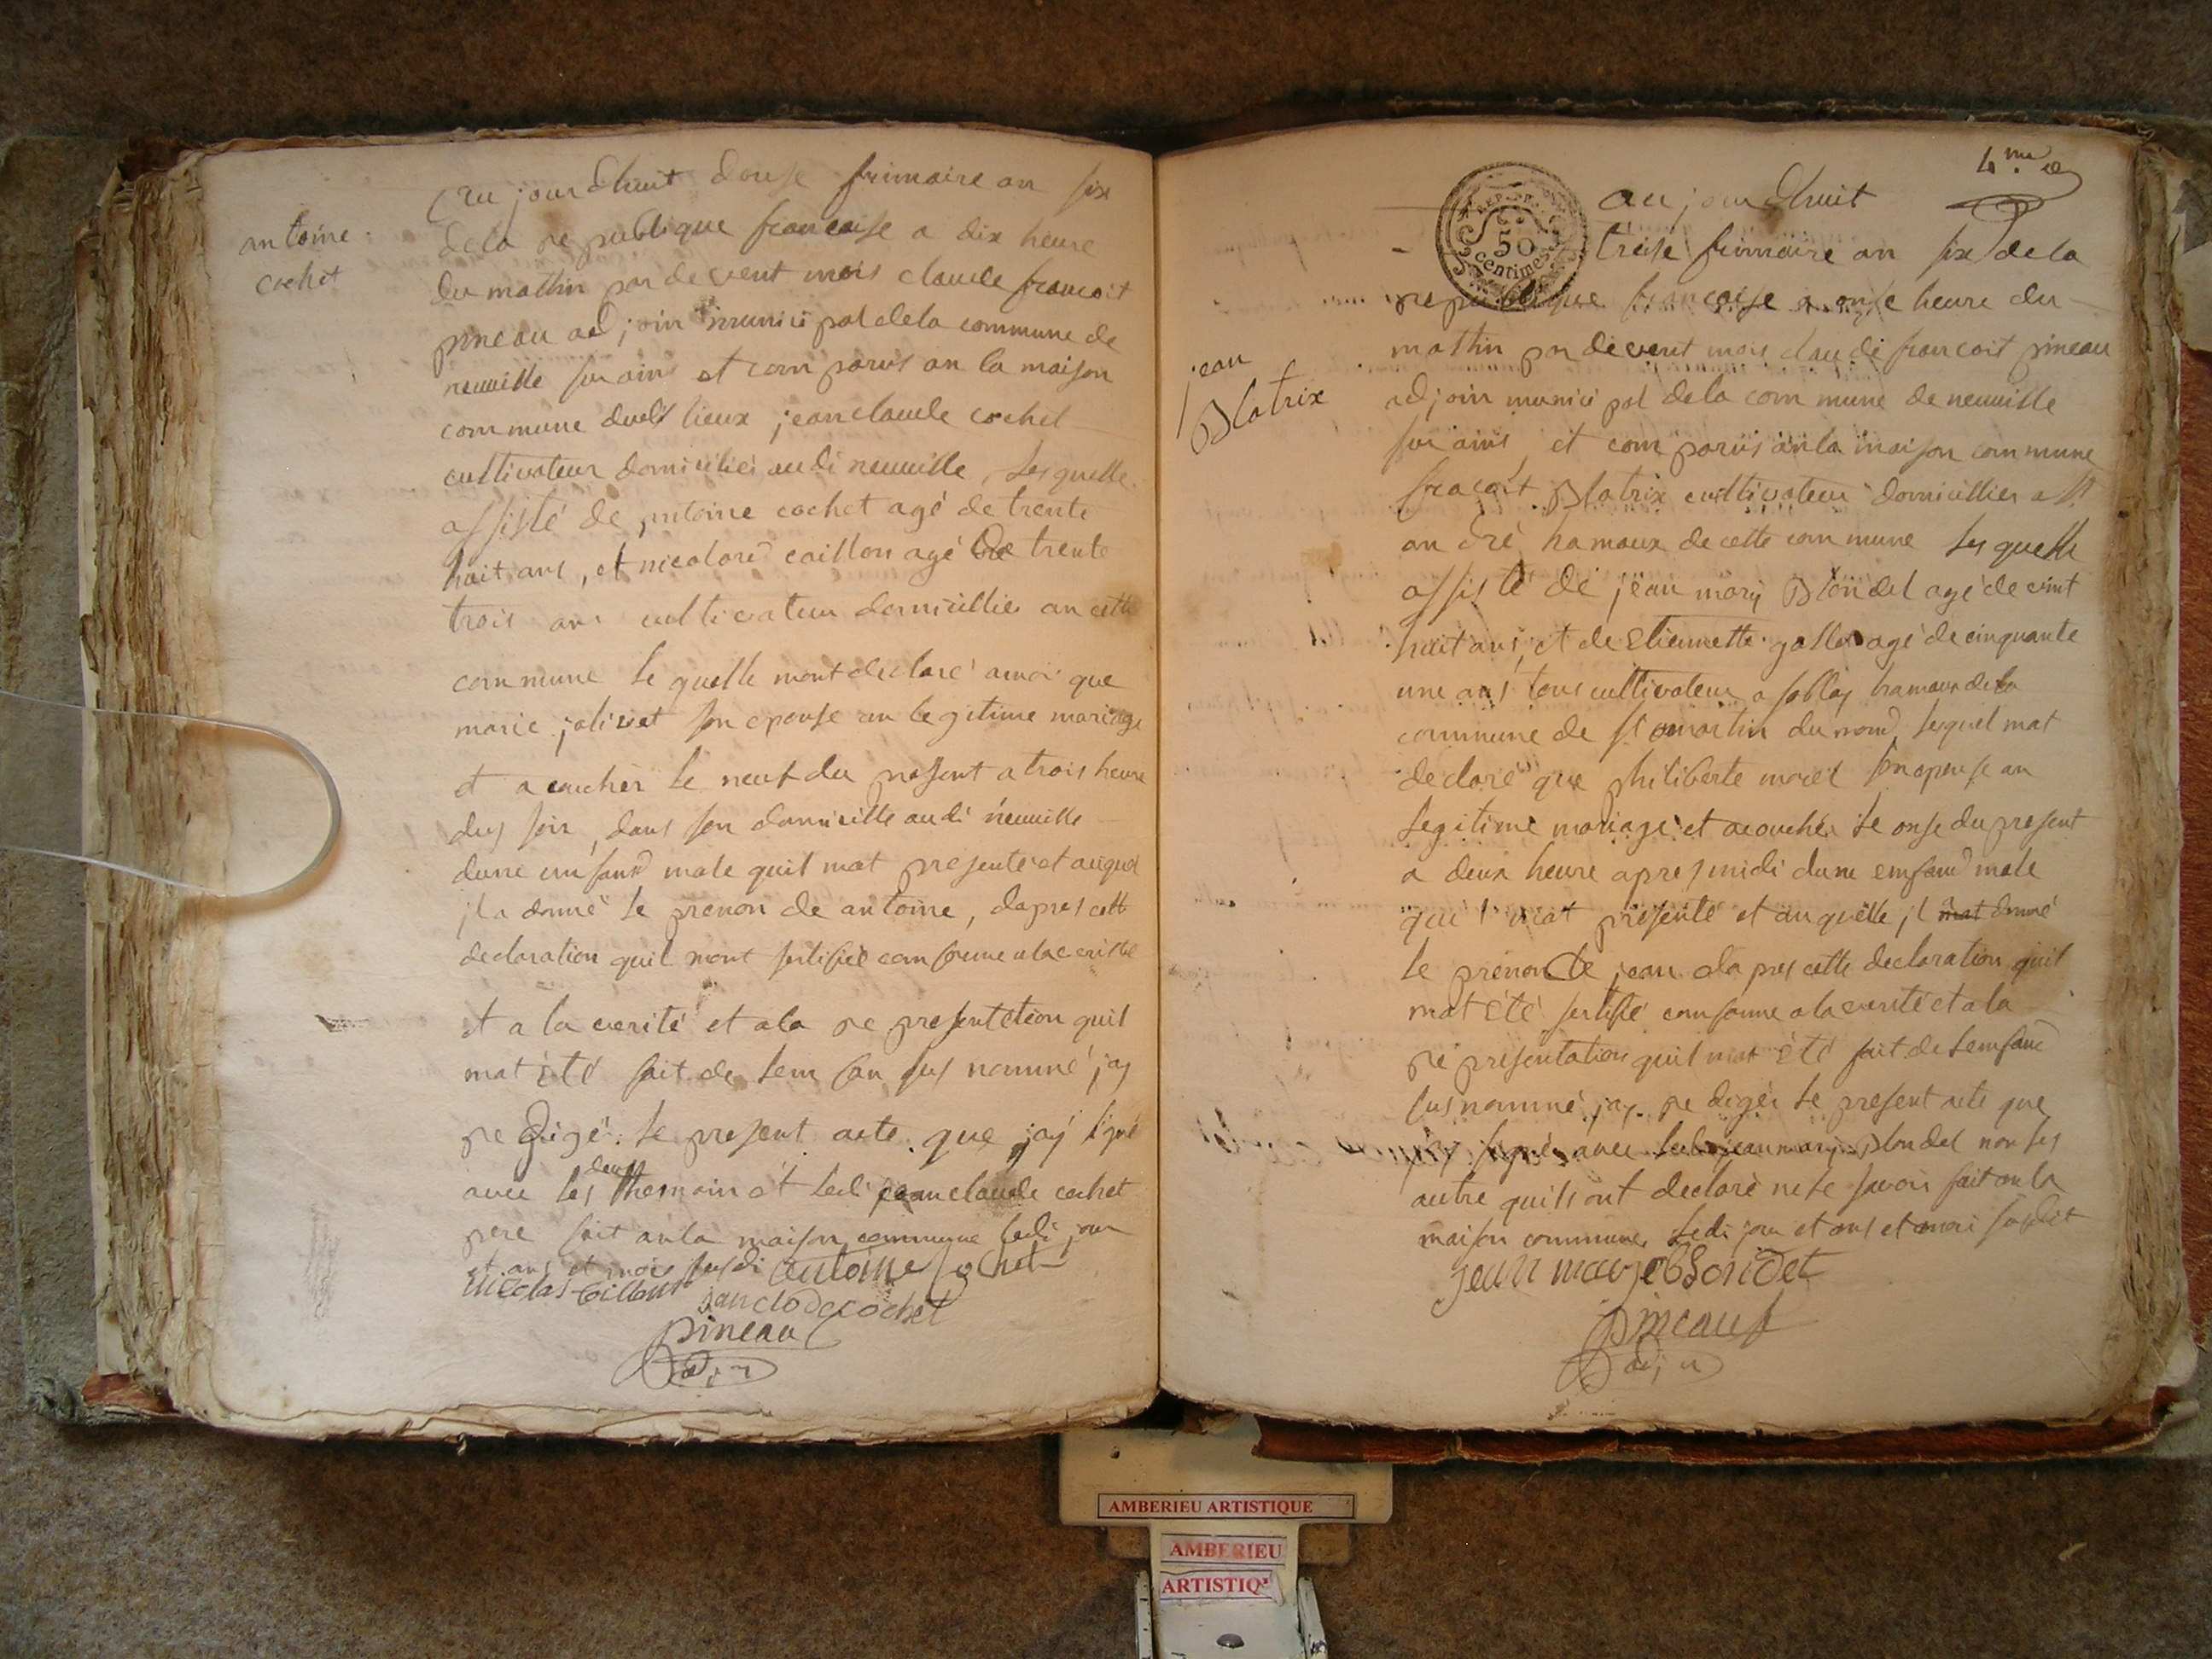 antoine
cochet
au jourdhuit douse frimaire an six
dela re publique francaise a dix heure
du mattin par de vent mois claude francoit
pineau ad join munici pal dela commune de
neuville sur ain et com parus an la maison
commune dudi lieux jean claude cochet
cultivateur domicilies audi neuville, les quelle
assisté de antoine cochet agé de trente
huit ans, et nicolard caillon agé De trente
trois ans cultivateur domicillies an cette
commune le quelle mont declaré avoi que
marie jolivet son epouse an legitime mariage
et a coucher le neuf du present a trois heure
duy soir, dans son domicille audi neuville
dune anfand male quil mat presenté et auquel
jl a donné le prenon de antoine, dapres cett
declaration quil mont sertifié comforme ala
et a la verité et ala re presentetion quil
mat été fait de lem fan sus nommé jay
re digé le present acte que jay signé
avec les deux themoin et ledi jean claude cochet
pere fait an la maison commune ledi jour
et ans et mois susdi antoine Cochet
nicolas Caillon jan clode cochet
pineau
adjn
4.me
REP. FRA.
50
centimes
jean
Blatrix
au jourdhuit
treise frimaire an six dela
republique francaise a onse heure du
mattin par de vent mois claude francoit pineau
adjoin munici pal dela com mune de neuville
sur ains et com parus anla maison commune
fracoit Blatrix cultivateur domicillies a St
an dré hamaux de cette com mune les quelle
assisté de jean mary Blondel agé de vint
huit ans, et de Etiennette agé de cinquante
une ans tous cultivateur a hamaux dela
commune de St martin du mond, lequel mat
declaré que philiberte morel son epouse an
legitime mariage et acouchér le onse du present
a deux heure apres midi dune emfand male
qui l mat presenté et au quelle jl mat donné
le prenon de jean dapres cette declaration quil
mat été sertifié comforme a la verité et a la
re presentation quil mat été fait de lemfand
sus nommé jay re diger le present acte que
jay signé avec ledi jean mary Blondel non les
autre quils ont declaré ne le savoir fait an la
maison commune ledi jour et ans et moi susdit
jean marje Blondel
pineau
adjn
AMBERIEU ARTISTIQUE
AMBERIEU
ARTISTIQ